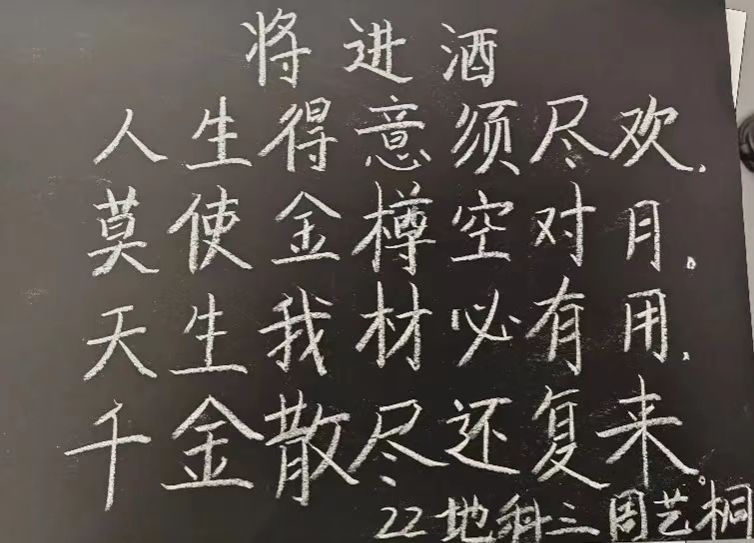 将进酒
人生得意须尽欢,
莫使金樽空对月。
天生我材必有用,
千金散尽还复来。
22地科三周艺桐